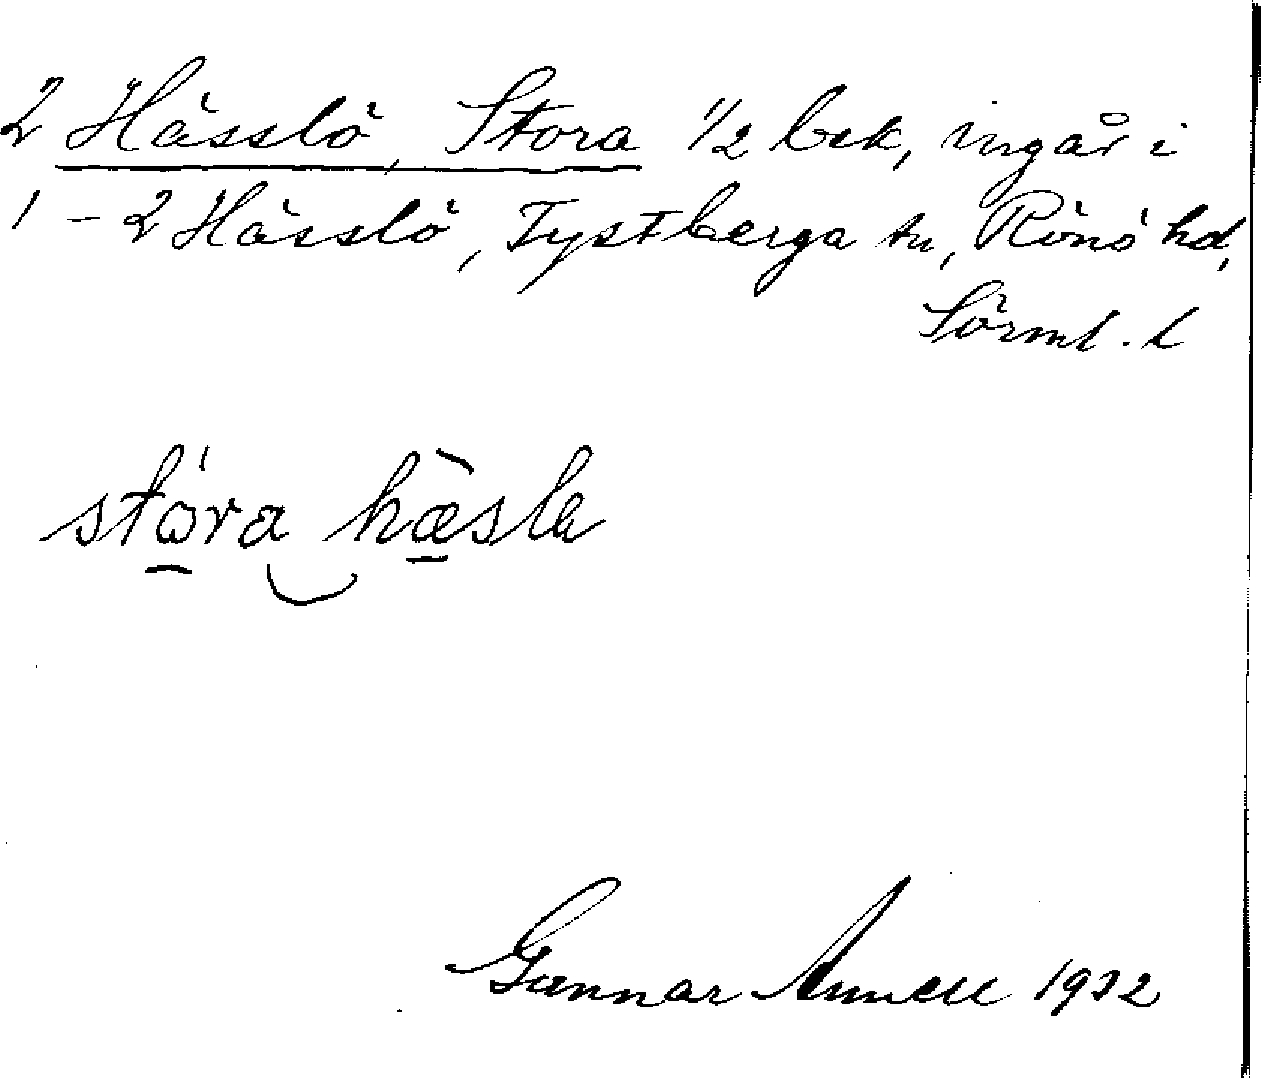 2 Hässlö, Stora 1/2 bek, ingår i
1 - 2 Hässlö, Tystberga sn, Rönö hd,
Sörml. l
stó̠ra‿hæ̠̀sla
Gunnar Annell 1932